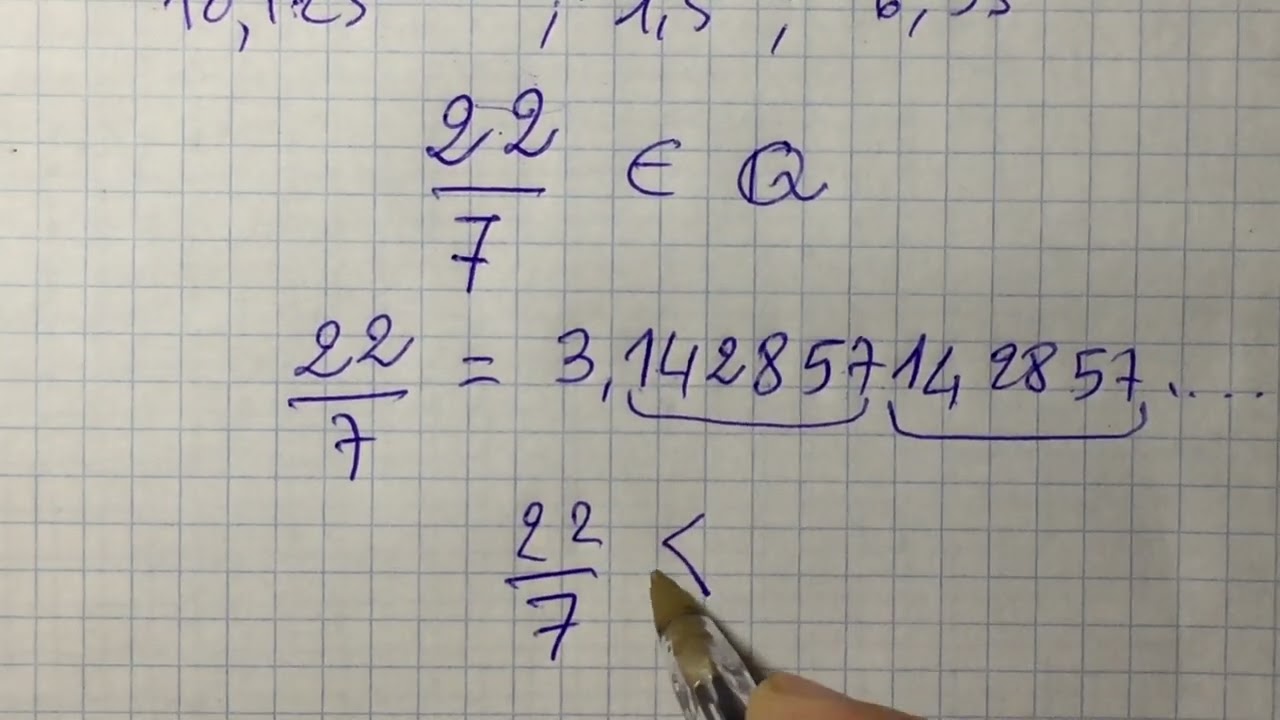 ; 1,5 ;
22/7 ∈ ℚ
22/7 = 3,142857142857.....
22/7 <